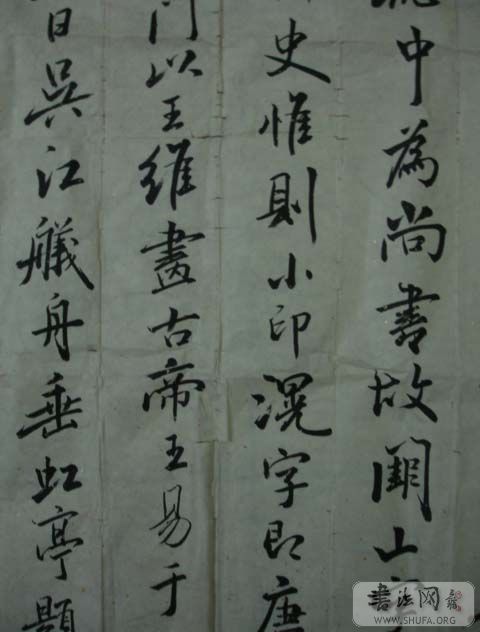 中為尚書故山
史惟則小印滉字即唐
門以王維畫古帝王易于
日吳江艤舟垂虹亭題
書法网
WWW.SHUFA.ORG